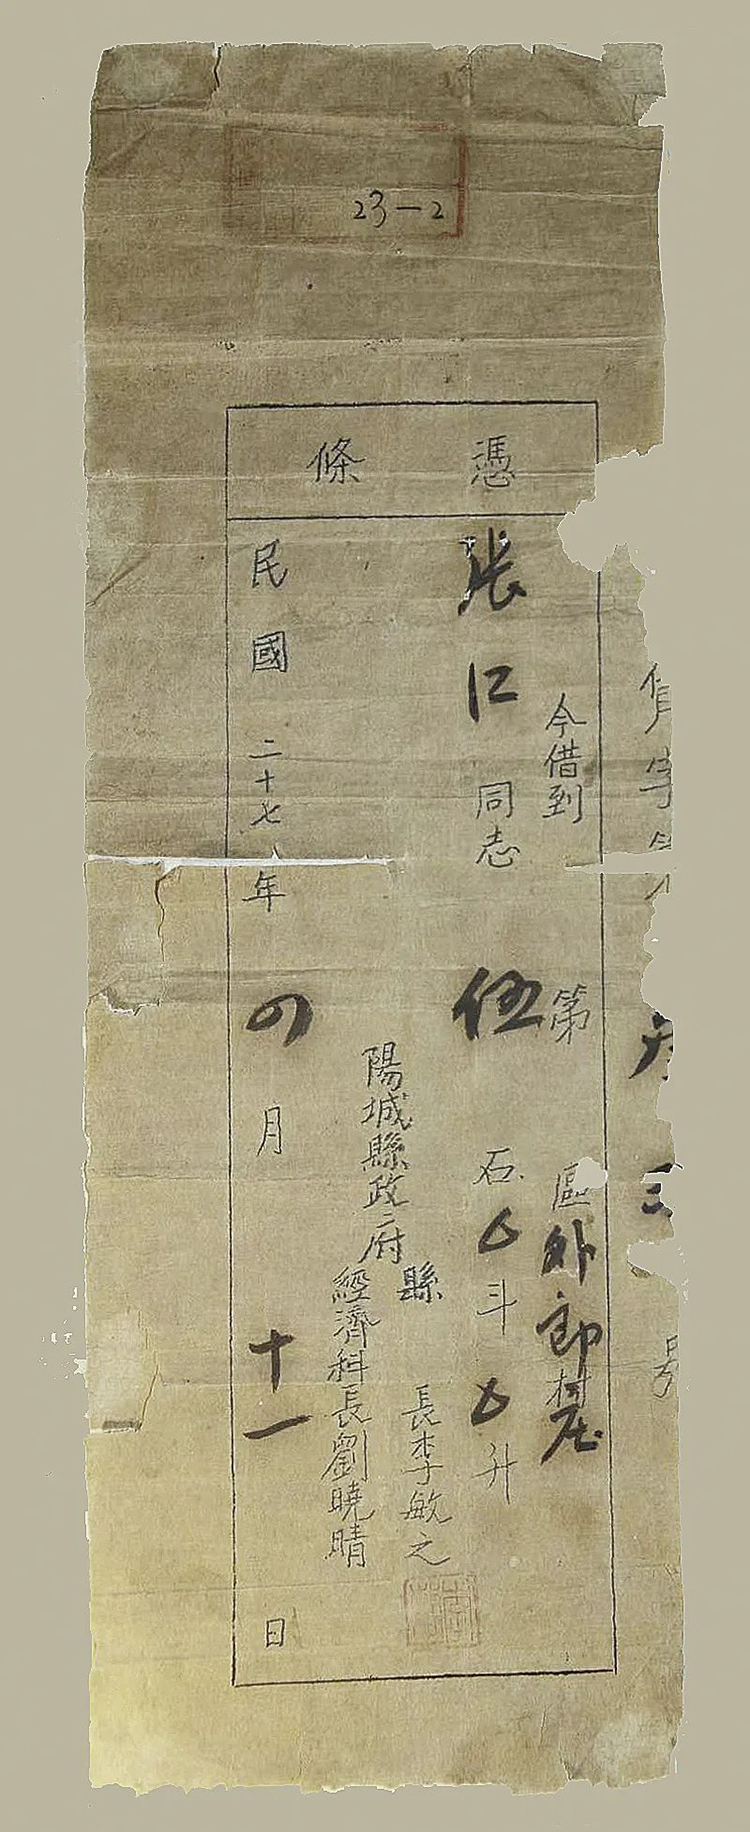 23-2
憑條
借字第
號
今借到
第 區外郎村庄
張仁同志 伍石〇斗〇升
縣長李敏之
陽城縣政府
經濟科長劉曉晴
民國二十七年四月十一日